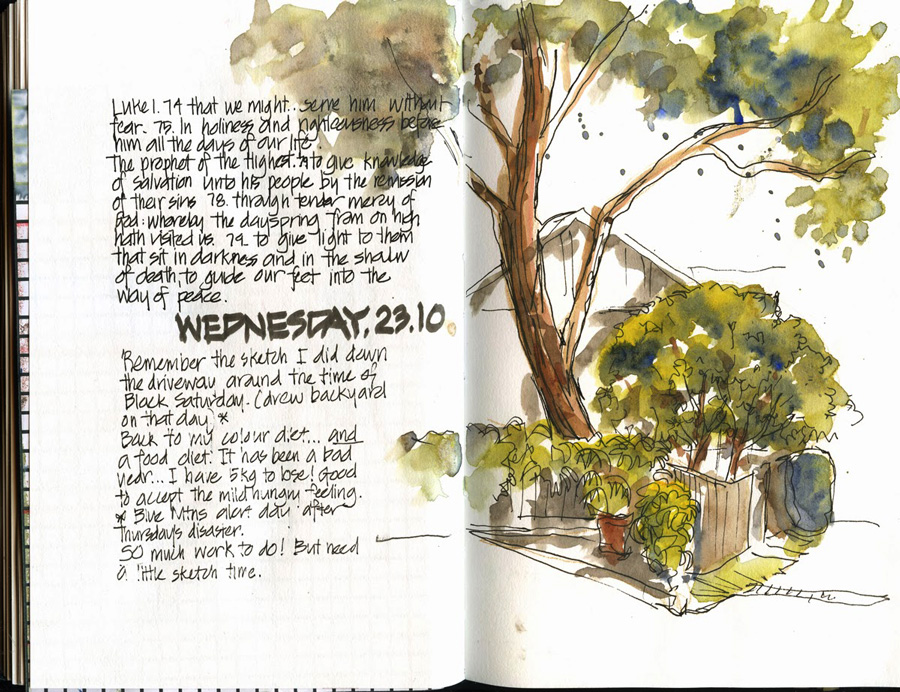 Luke 1. 74 that we might... serve him without
fear. 75. In holiness and righteousness before
him all the days of our life.
The prophet of the Highest. 77 to give knowledge
of salvation unto his people by the remission
of their sins 78. through tender mercy of
God: whereby the dayspring from on high
hath visited us. 79. to give light to them
that sit in darkness and in the shadw
of death, to guide our feet into the
way of peace.
WEDNESDAY, 23.10
Remember the sketch I did down
the driveway around the time of
Black Saturday. (drew backyard
on that day) *
Back to my colour diet... and
a food diet. It has been a bad
year... I have 5kg to lose! Good
to accept the mild hungry feeling.
* Blue Mtns alert day after
Thursday's disaster.
SO much work to do! But need
a little sketch time.